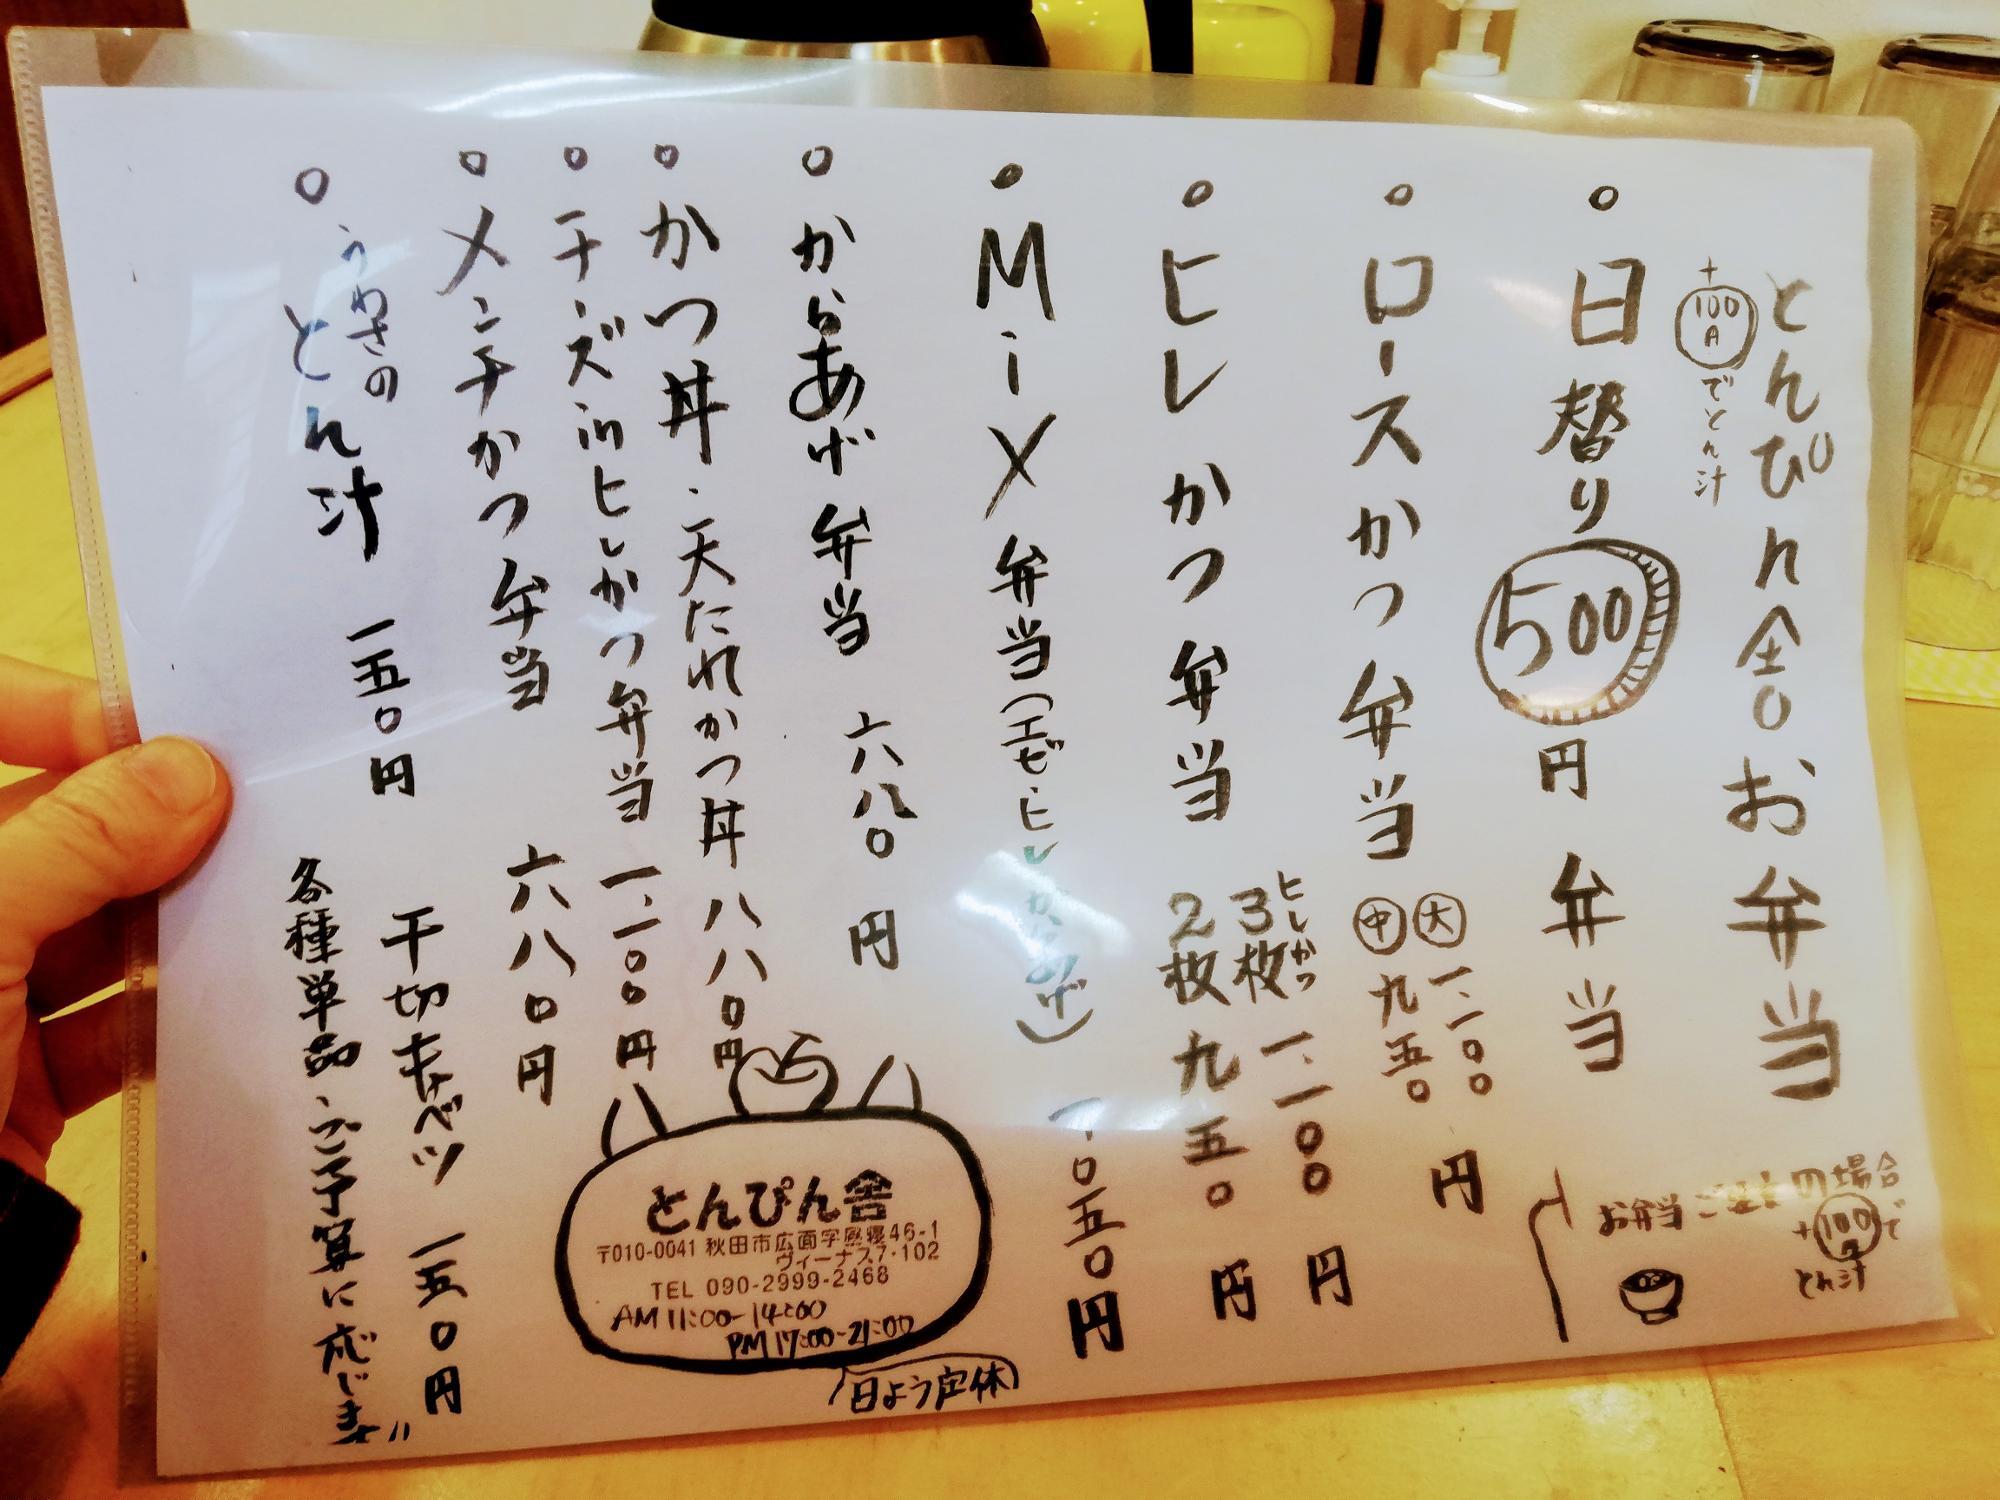 とんぴん舎のお弁当
+100円でとん汁
日替り500円弁当
ロースかつ弁当
大 一、一〇〇円
中 九五〇
ヒレかつ弁当
ヒレかつ
3枚 一、一〇〇円
2枚 九五〇円
MiX弁当(エビ・ヒレ・からあげ) 一、〇五〇円
からあげ弁当 六八〇円
かつ丼・天たれかつ丼 八八〇円
チーズinヒレかつ弁当 一、一〇〇円
メンチかつ弁当 六八〇円
うわさの
とん汁 一五〇円
千切キャベツ 一五〇円
各種単品・ご予算に応じます
お弁当ご注文の場合
+100円で
とん汁
とんぴん舎
〒010-0041 秋田市広面字昼寝46-1
ヴィーナス7・102
TEL 090-2999-2468
AM11:00-14:00
PM17:00-21:00
日よう定休